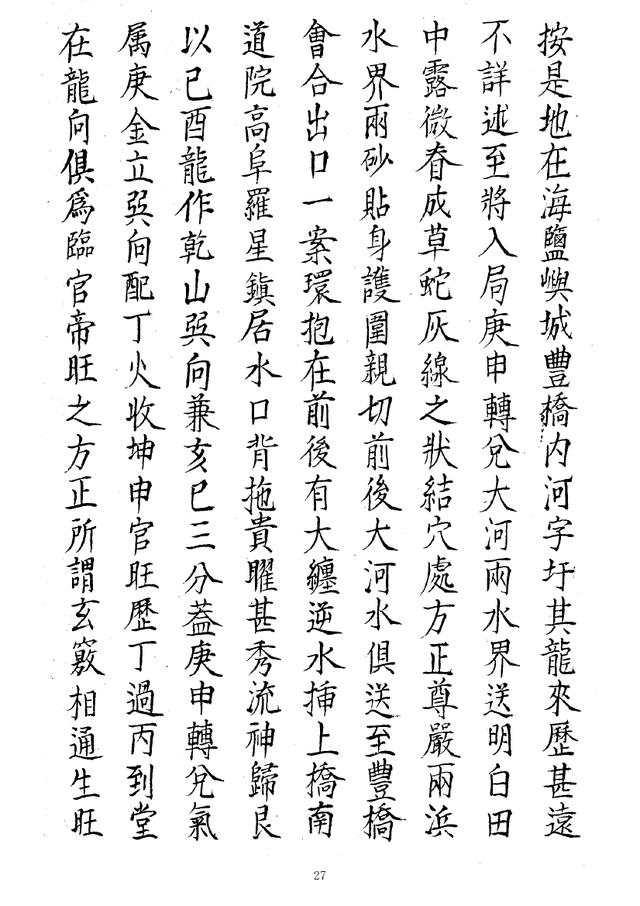 按是地在海鹽嶼城豐橋内河字圩其龍來歷甚遠
不詳述至將入局庚申轉兌大河兩水界送明白田
中露微脊成草蛇灰線之狀結穴處方正尊嚴兩浜
水界兩砂貼身護圍親切前後大河水俱送至豐橋
會合出口一案環抱在前後有大纏逆水揷上橋南
道院高阜羅星鎮居水口背拖貴曜甚秀流神歸艮
以己酉龍作乾山巽向兼亥巳三分葢庚申轉兌氣
属庚金立巽向配丁火收坤申官旺歷丁過丙到堂
在龍向俱爲臨官帝旺之方正所謂玄竅相通生旺
27